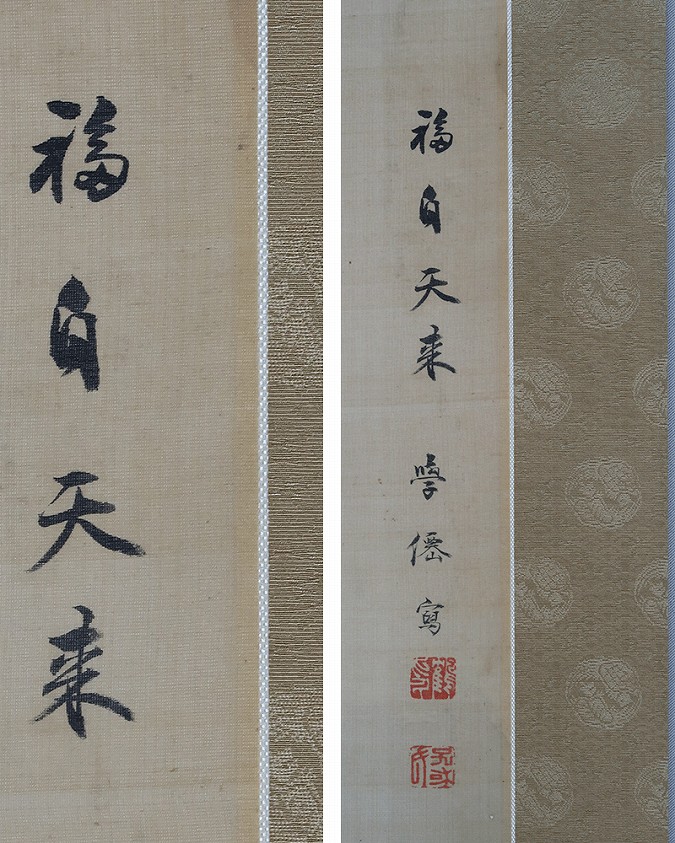 福自天来
福自天来 學僊寫